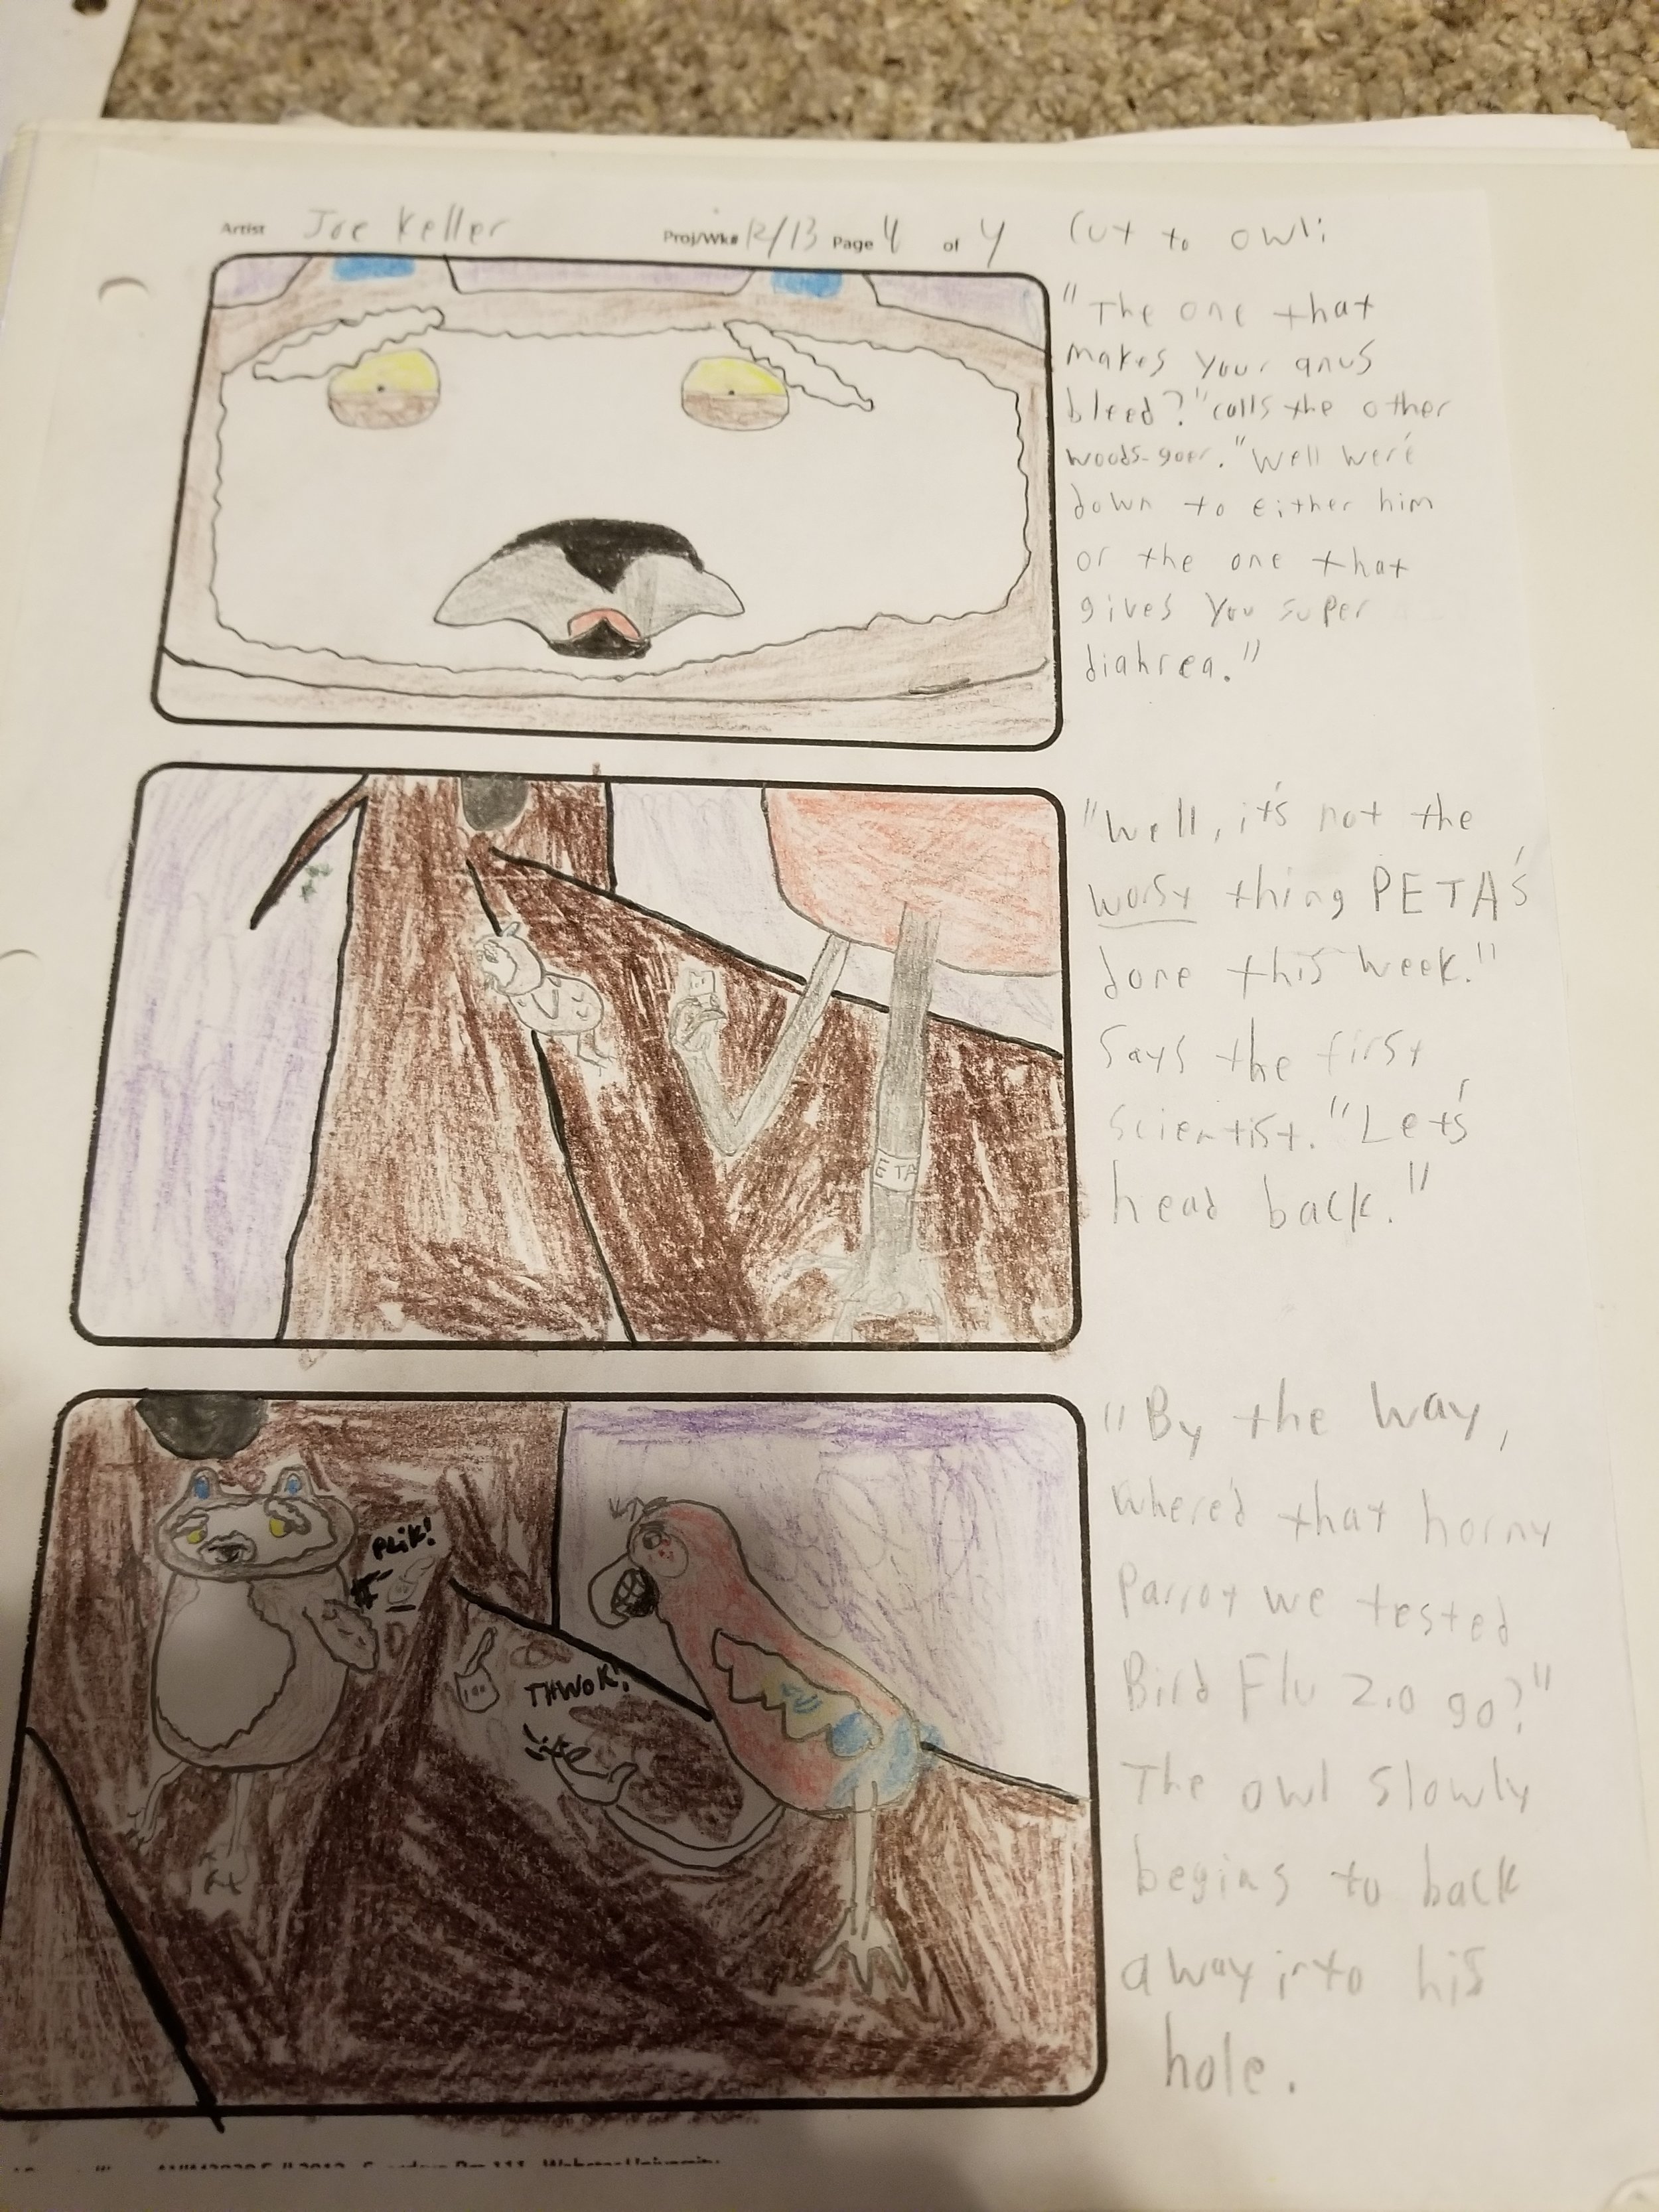 Artist Joe Keller Proj/Wk# 12/13 Page 4 of 4
Cut to owl:
"The one that
makes your anus
bleed?" calls the other
woods-goer. "Well we're
down to either him
or the one that
gives you super
diahrea."
"Well, it's not the
worst thing PETA's
done this week."
Says the first
scientist. "Let's
head back."
ETA
"By the way,
where'd that horny
Parrot we tested
Bird Flu 2.0 go?"
The owl slowly
begins to back
away into his
hole.
PLiK!
THWOK!
Webster University